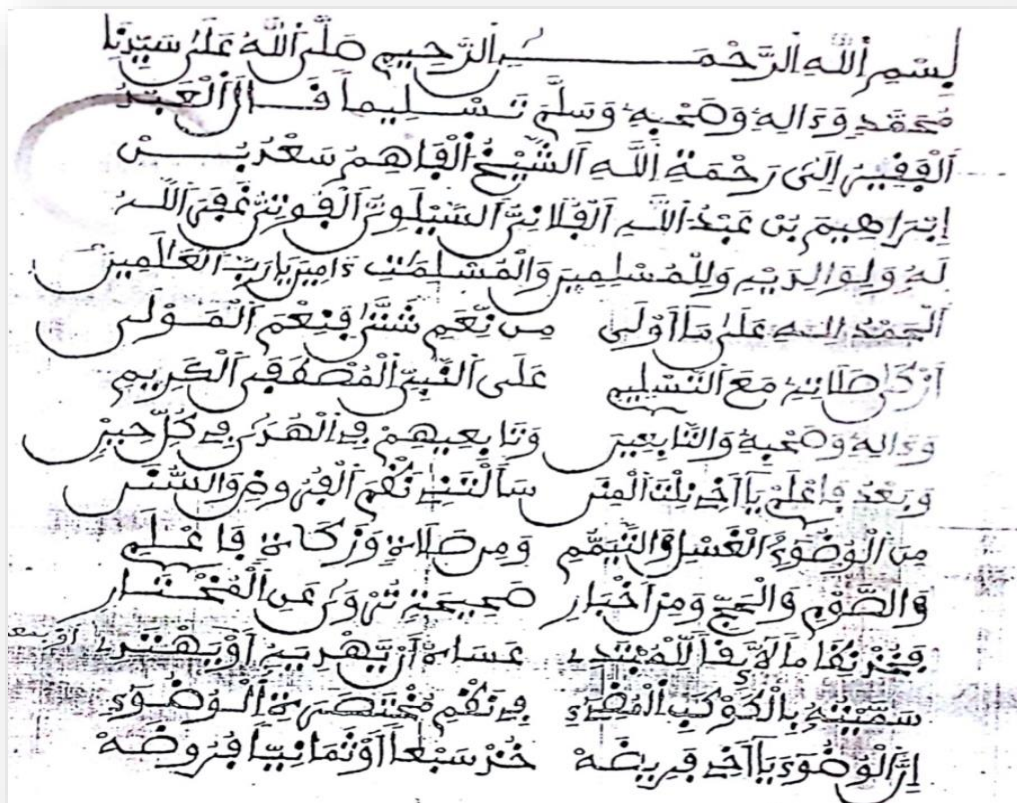 بِسْمِ اللَّهِ الرَّحْمَٰنِ الرَّحِيمِ صَلَّى اللَّهُ عَلَى سَيِّدِنَا
مُحَمَّدٍ وَءَالِهِ وَصَحْبِهِ وَسَلَّمَ تَسْلِيماً قَالَ الْعَبْدُ
الْفَقِيرُ إِلَى رَحْمَةِ اللَّهِ الشَّيْخُ الْفَاهِمُ سَعْدُ بْنُ
إِبْرَاهِيمَ بْنِ عَبْدُ اللَّهِ الْفُلَانِيُّ السَّيْلِوِيُّ الْفُوتِيُّ غَفَرَ اللَّهُ
لَهُ وَلِوَالِدَيْهِ وَلِلْمُسْلِمِينَ وَالْمُسْلِمَاتِ ءَامِينَ يَا رَبَّ الْعَالَمِينَ
الْحَمْدُ لِلَّهِ عَلَى مَا أَوْلَى مِن نِّعَمٍ شَتَّى فَنِعْمَ الْمَوْلَى
أَزْكَى صَلَاتِهِ مَعَ التَّسْلِيمِ عَلَى النَّبِيِّ الْمُصْطَفَى الْكَرِيمِ
وَءَالِهِ وَصَحْبِهِ وَالتَّابِعِينَ وَتَابِعِيهِمْ فِي الْهُدَى فِي كُلِّ حِينٍ
وَبَعْدُ فَاعْلَمْ يَا أَخِي نِلْتَ الْمِنَنَ سَأَلْتَنِي نَظْمَ الْفُرُوضِ وَالسُّنَنَ
مِنَ الْوُضُوءِ الْغَسْلِ وَالتَّيَمُّمِ وَمِن صَلَاةٍ وَزَكَاةٍ فَاعْلَمِ
وَالصَّوْمِ وَالْحَجِّ وَمِنْ أَخْبَارِ صَحِيحَةٍ تُرْوَى عَنِ الْمُخْتَارِ
فَخُذْ نِظَاماً لَائِقاً لِّلْمُبْتَدِي عَسَاهُ أَن يَّهْدِيَهُ أَوْ يَهْتَدِي
سَمَّيْتُهُ بِالْكَوْكَبِ الْمُضِيءِ فِي نَظْمِ مُخْتَصَرَةِ الْوُضُوءِ
إِنَّ الْوُضُوءَ يَا أَخِي فَرِيضَهْ خُذْ سَبْعاً أَوْ ثَمَانِياً فُرُوضَهْ